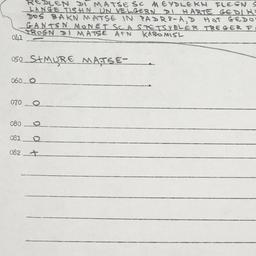 REDLEN DI MATSE SC MEYDLEKH FLEGN S
LANGE TISHN UN VELGERN DI HARTE GEDIH
DOS BAKN MATSE IN PADRY-A,D HOT GEDO
GANTSN MONET SC A STETSYELER TREGER F
TROGN DI MATSE AFN KABOMISL
041 —
050 SHMURE MATSE-
060 0
070 0
080 0
081 0
082 +